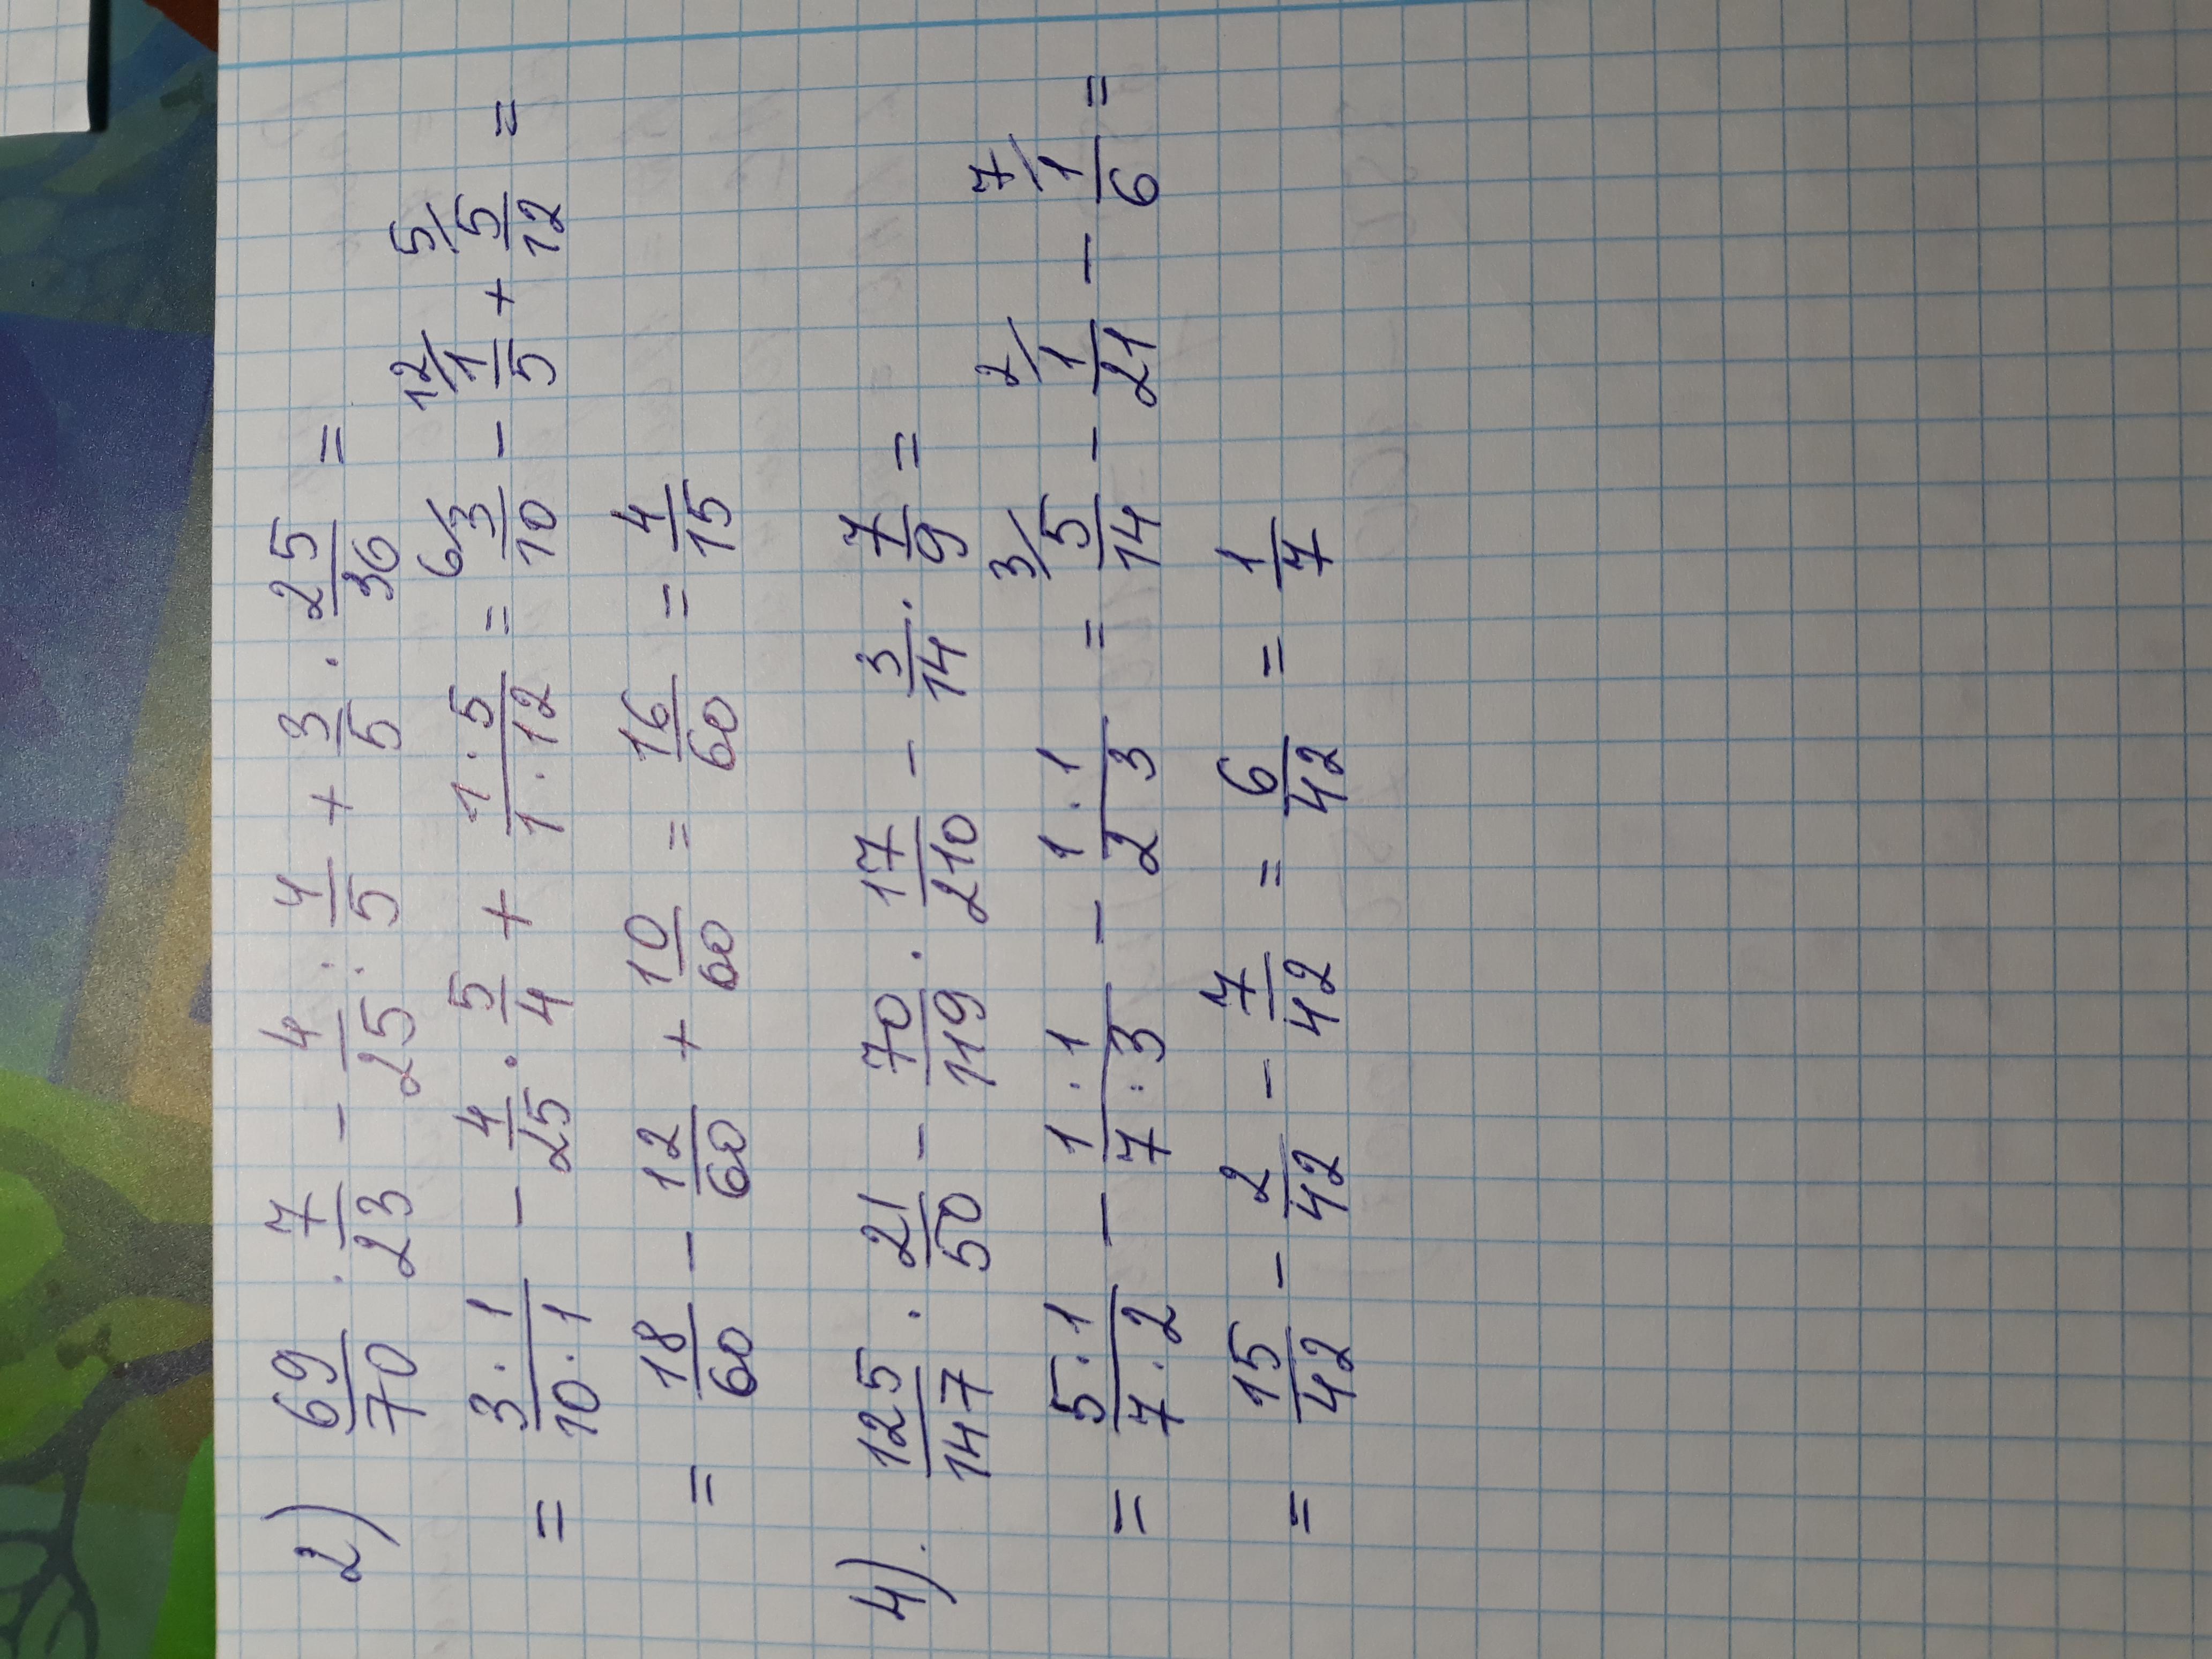 2) 69/70 · 7/23 - 4/25 : 4/5 + 3/5 · 25/36 =
= 3·1/10·1 - 4/25 · 5/4 + 1·5/1·12 = 6/ 3/10 - 12/ 1/5 + 5/ 5/12 =
= 18/60 - 12/60 + 10/60 = 16/60 = 4/15
4). 125/147 · 21/50 - 70/119 · 17/210 - 3/14 · 7/9 =
= 5·1/7·2 - 1·1/7·3 - 1·1/2 3 = 3/ 5/14 - 2/ 1/21 - 7/ 1/6 =
= 15/42 - 2/42 - 7/42 = 6/42 = 1/7